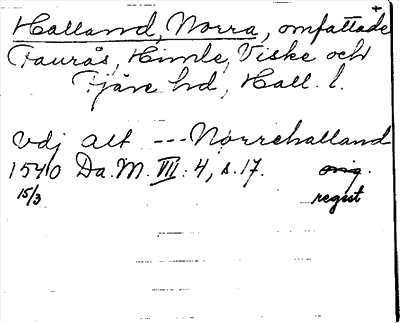 Halland, Norra, omfattade
Faurås, Himle, Viske och
Fjäre hd, Hall. l.
vdj alt --- Nørrehalland
1540 Da. M. III: 4, s. 17. orig.
15/3 regist